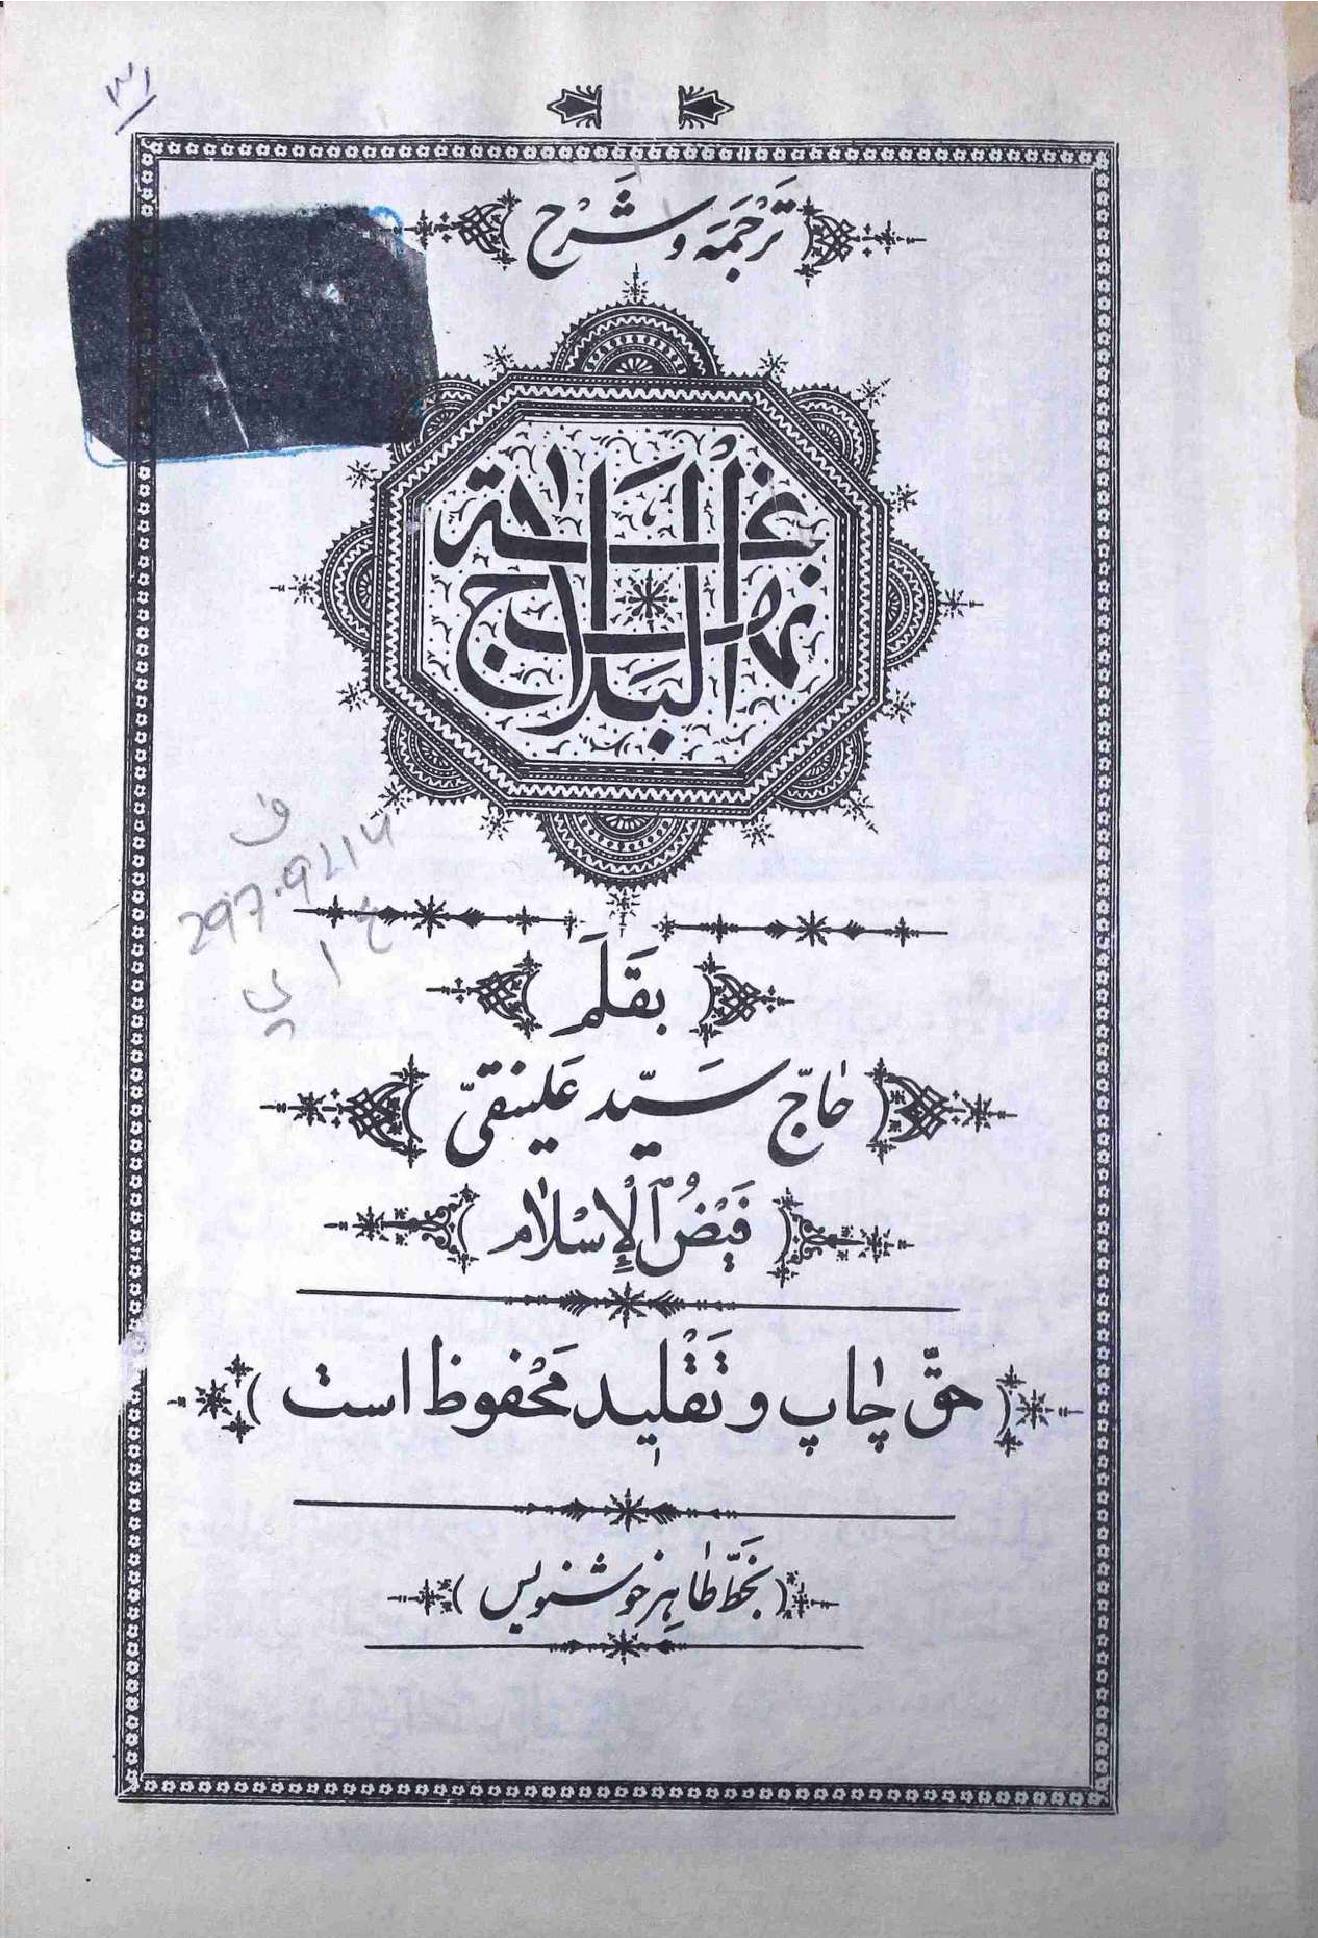 ۳۱
تَرْجَمَه و شَرْح
نهج البلاغة
ف
297.9214
ع ا
بقَلَم
حاجّ سَیّد عَلینقیّ
فَیْضُ الْإِسْلام
حقّ چاپ و تَقْلید مَحْفوظ است
بخَطّ طاهِر خوشنویس